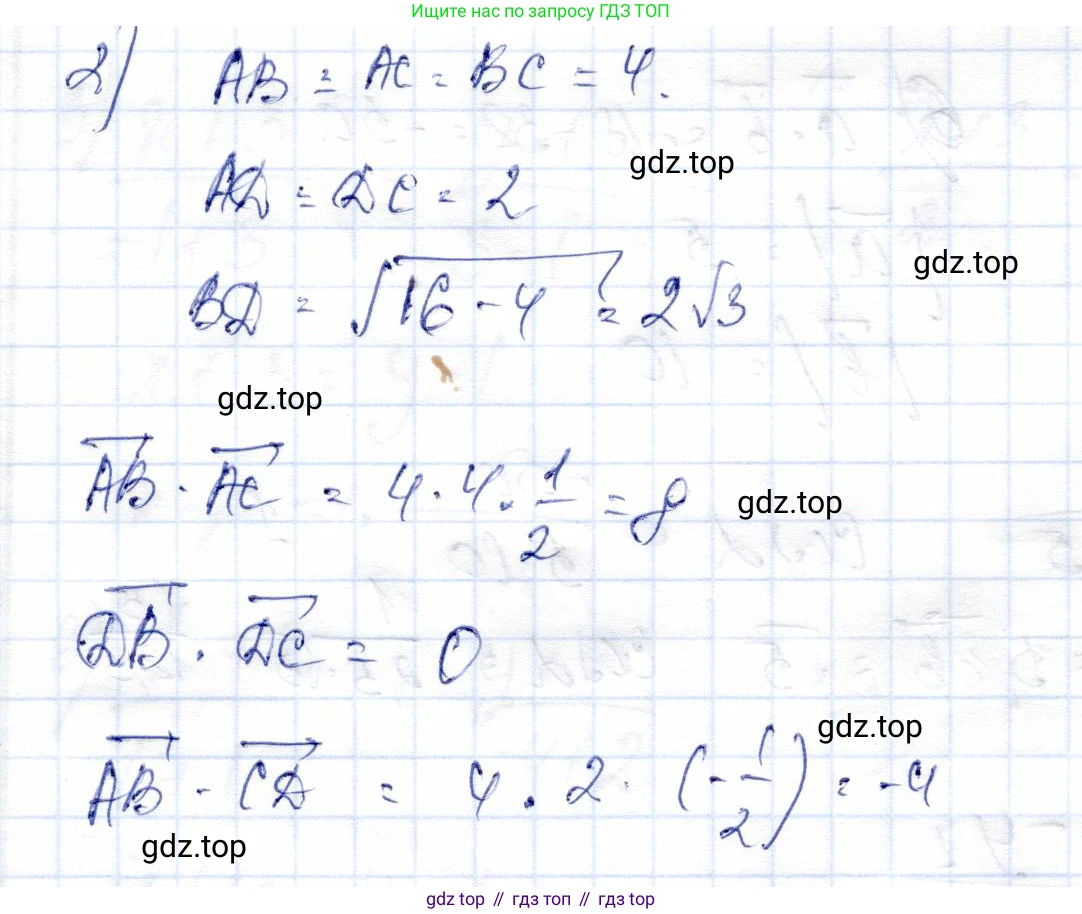 Ищите нас по запросу ГДЗ ТОП
2) AB = AC = BC = 4.
gdz.top
AD = DC = 2
gdz.top
BD = √16 - 4 = 2√3
gdz.top
AB · AC = 4 · 4 · 1/2 = 8
gdz.top
DB · DC = 0
gdz.top
AB · CD = 4 · 2 · (-1/2) = -4
gdz.top
gdz top // гдз топ // gdz top